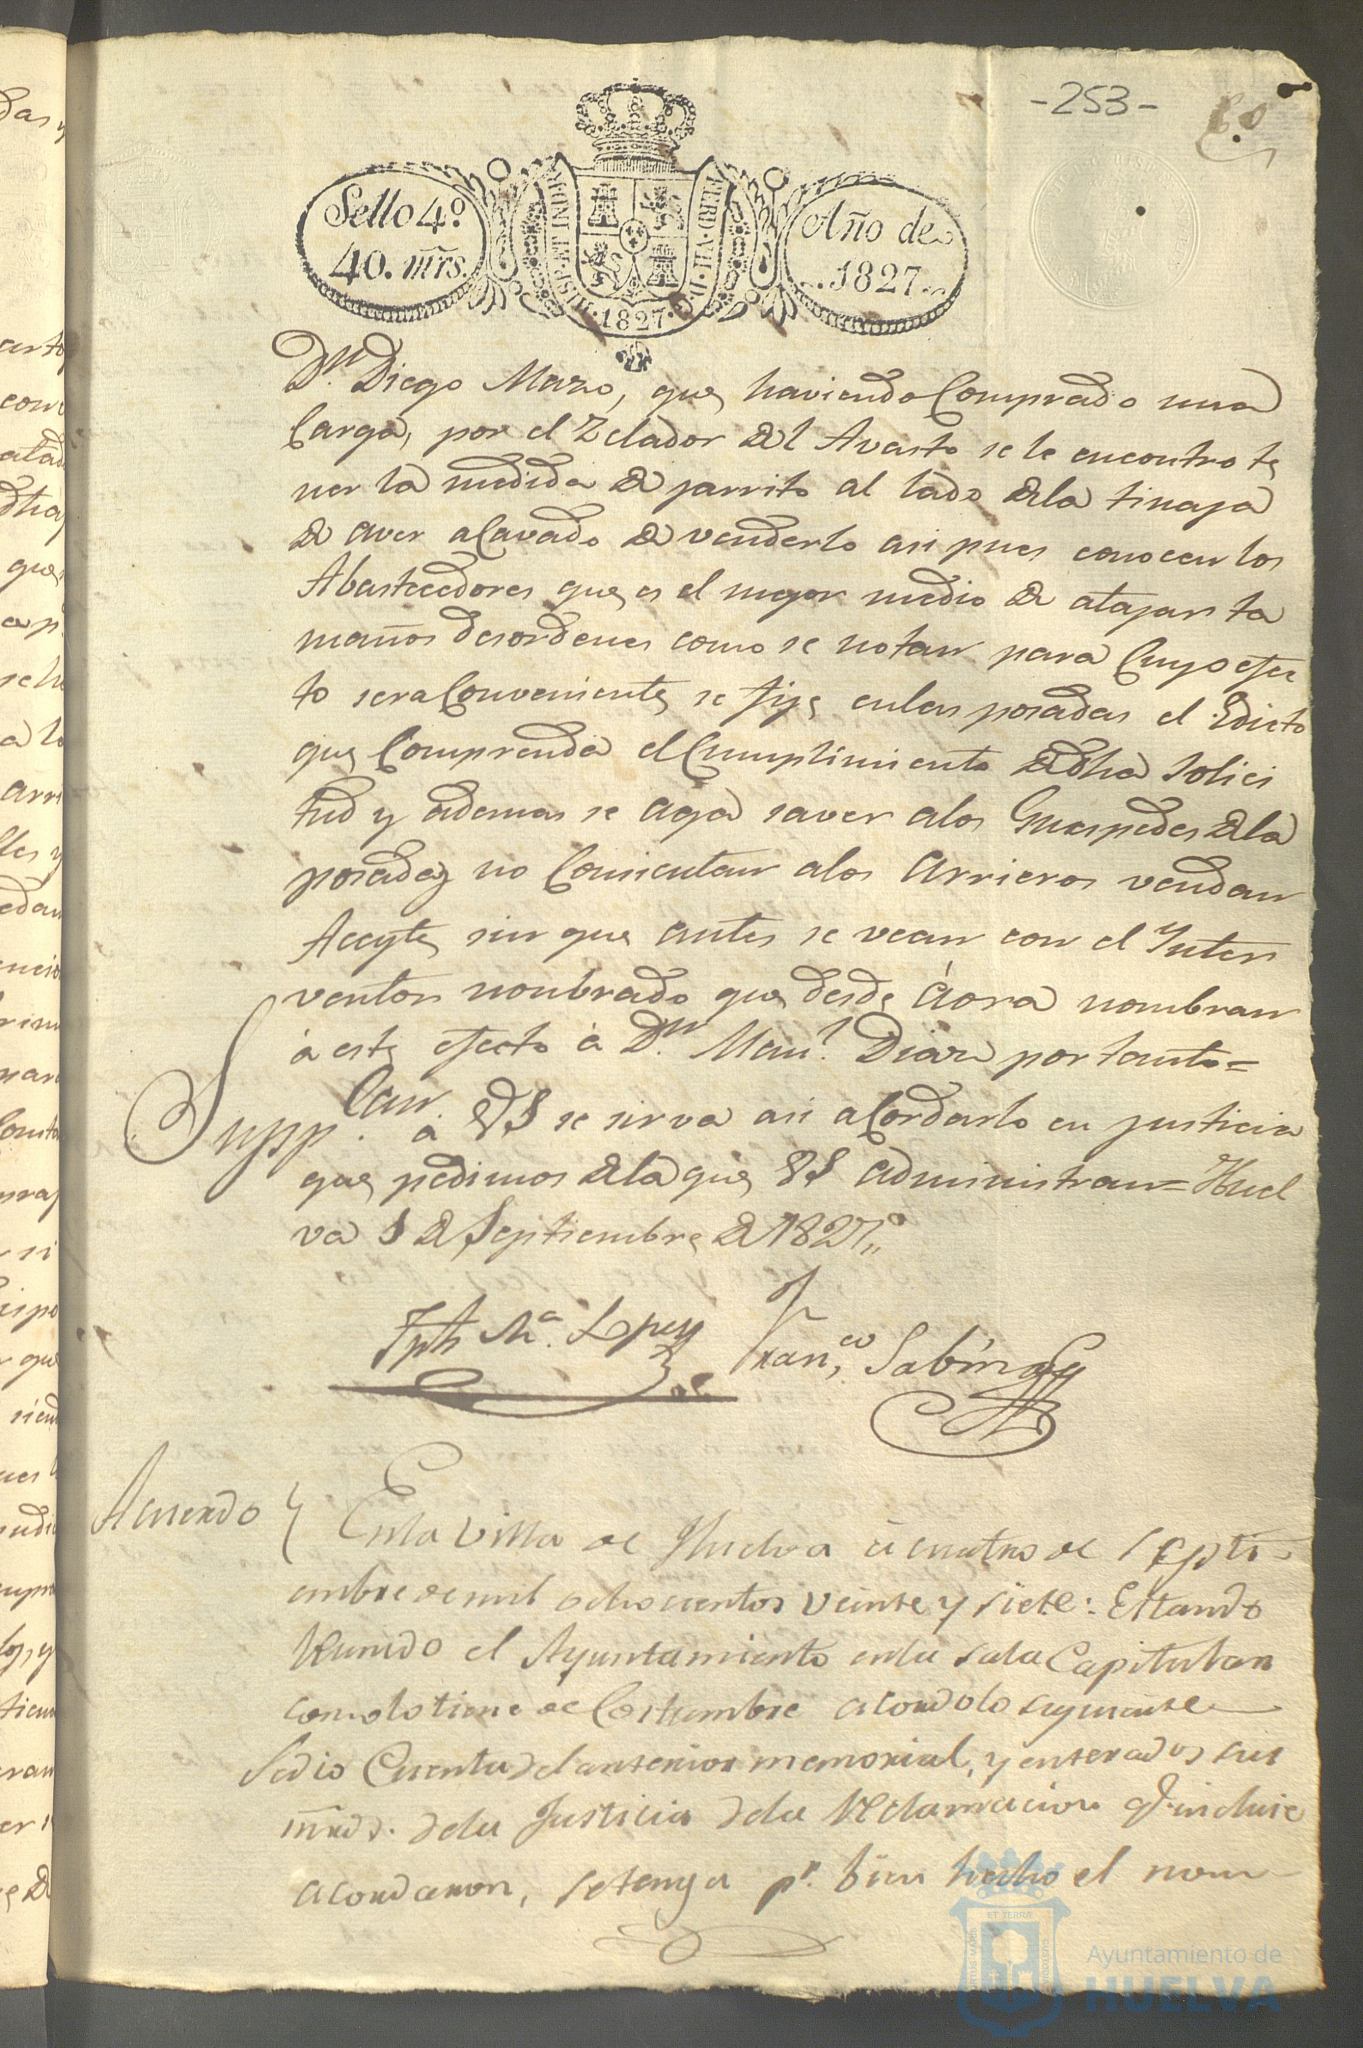 -253-
Sello 4º
40. mrs.
HISP. ET IND. R.
FERD. VII. D. G.
1827
Año de
1827
Dn. Diego Mazo, que haviendo Comprado una
Carga, por el Zelador del Avasto se le encontro te
ner la medida de jarrito al lado dela tinaja
de aver acavado de venderlo asi pues conocen los
Abastecedores que es el mejor medio de atajar ta
maños desordenes como se notan para Cuyo efec
to sera Conveniente se fije enlas posadas el Edicto
que Comprenda el Cumplimiento de dha solici
tud y ademas se aga saver alos Guespedes dela
posadas no Consientan alos Arrieros vendan
Aceyte sin que antes se vean con el Inter
ventor nonbrado que desde áora nombran
á este efecto á Dn. Manl. Diaz por tanto=
Suppcan. a VS se sirva asi acordarlo en justicia
que pedimos dela que VS administran= Huel
va 1 de Septiembre de 1827,,
Jph Mª. Lopez Franco. Sabino
Acuerdo { Enla Villa de Huelva á cuatro de Septi-
embre de mil ochocientos veinte y siete: Estando
Reunido el Ayuntamiento enla sala Capitular
como lo tiene de Costumbre acordo lo siguiente
Sedio Cuenta del anterior memorial, y enterados sus
mrds. dela Justicia dela Reclamacion q. incluie
acordaron, setenga pr. bien hecho el nom-
ET TERRÆ
Ayuntamiento de
HUELVA